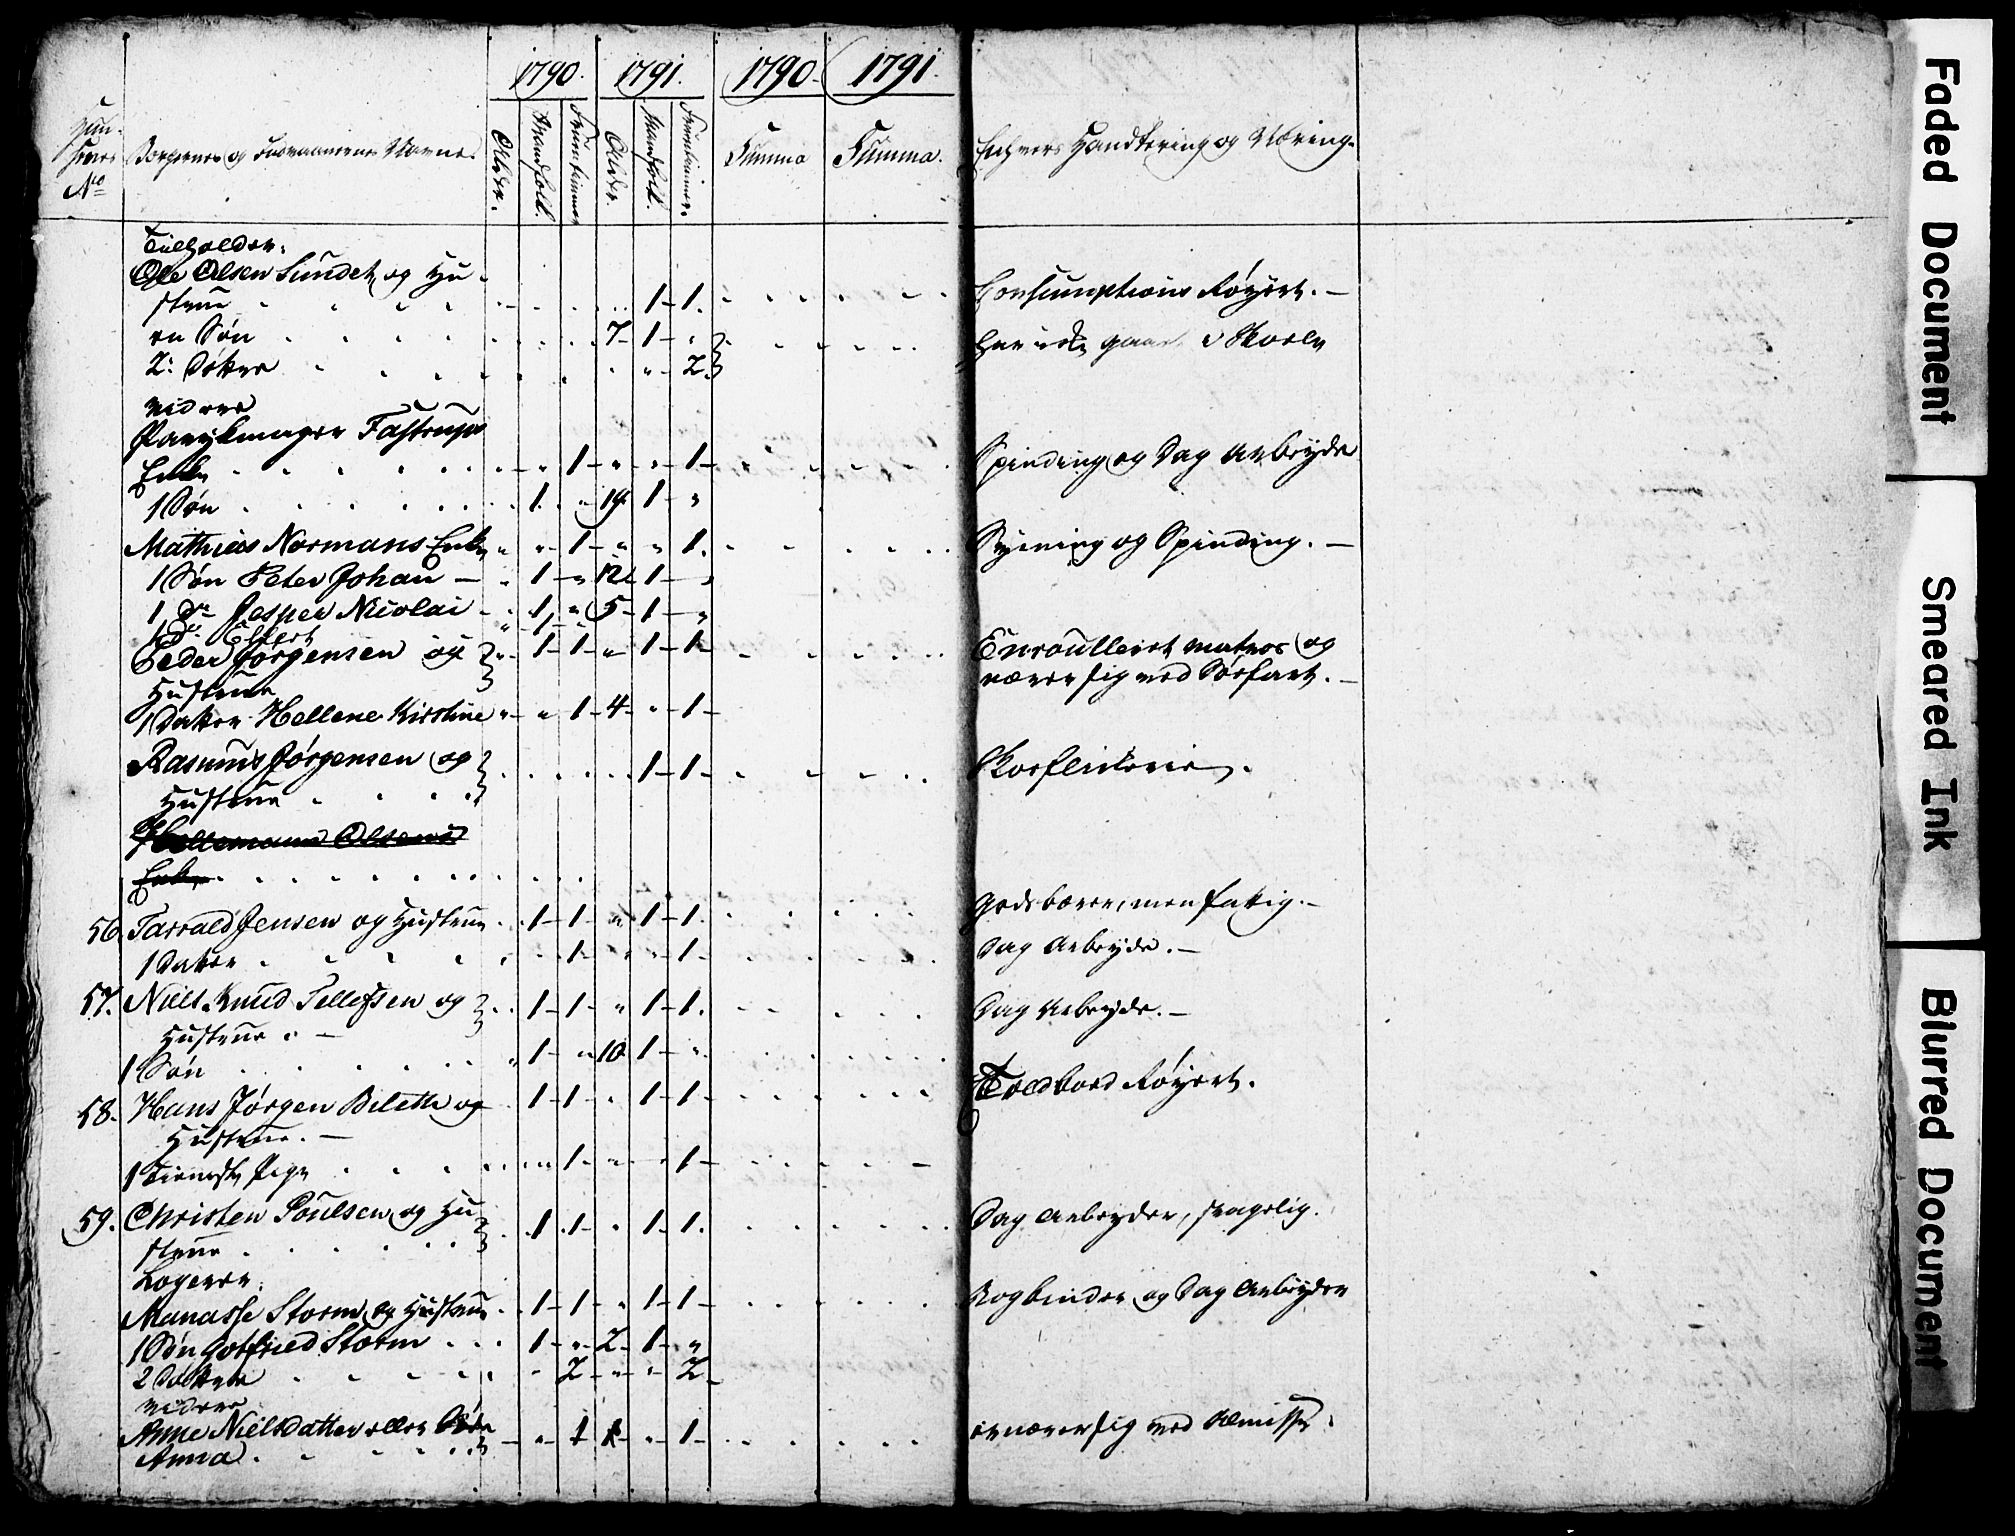 1790. 1791. 1790. 1791.
Huu-
sernes
No
Borgernes og Indvaanernes Navne.
Alder. Mandfolk. Fruentimmer Alder. Mandfolk. Fruentimmer.
Summa Summa.
Enhvers Handtering og Næring.
Tilholder:
Ole Olsen Sundet, og Hu-
strue 1 – 1. Consumptions Røgert. –
en Søn 7 – 1 – " har ikke gaaet i Skoele
2: Døttre " – 2
videre
Parykmager Fastrups
Enke " 1 – " " – 1 – Spinding og Dag Arbeyde
1 Søn 1. " 14. 1 – "
Mathias Normans Enke " " – 1 – " " 1. Syening og Spinding. –
1 Søn Peter Johan – " 1 – " 12. 1 – "
1 Do Jesper Nicolai – " 1. " 5 – 1 – "
1 Do Ellert " 1 –
Peder Jørgensen og " – 1 – 1 – " 1 – 1 – Enroulleret matros og
Hustrue nærer sig med Søefart. –
1 Datter Hellene Kirstine " – " 1 – 4 – " – 1 –
Rasmus Jørgensen og 1 – 1 – Skoeflikkerie.
Hustrue
Hellemann Olsens
Enke
Godsbærer, men fattig. –
56. Tarrald Jensen og Hustrue 1 – 1 – " 1 – 1. Dag Arbeyde. –
1 Datter 1 – " " – 1 –
57. Niels Knud Tellefsen og 1 – 1 – " 1 – 1. Dag Arbeyde. –
Hustrue. –
1 Søn " 1 – " 10 1 – "
58. Hans Jørgen Biletts og 1 – 1 – " 1 – 1 – Røgert.
Hustrue. –
1 Tieneste Pige " 1 – " " 1 –
59. Christen Poulsen og Hu- 1 1 – " 1 – 1. Dag Arbeyder, svagelig.
strue
Logerer
Manasse Storm og Hustrue 1 – 1 – " 1 – 1 – Bogbinder og Dag Arbeyder
1 Søn Gotfried Storm 1 – " 2 – 1 – "
2 Døttre " 2 – " " 2 –
videre
Anne Nielsdatter eller " 1 1 – " 1 – ernærer sig med Almisse.
Anna
Faded Document
Smeared Ink
Blurred Document